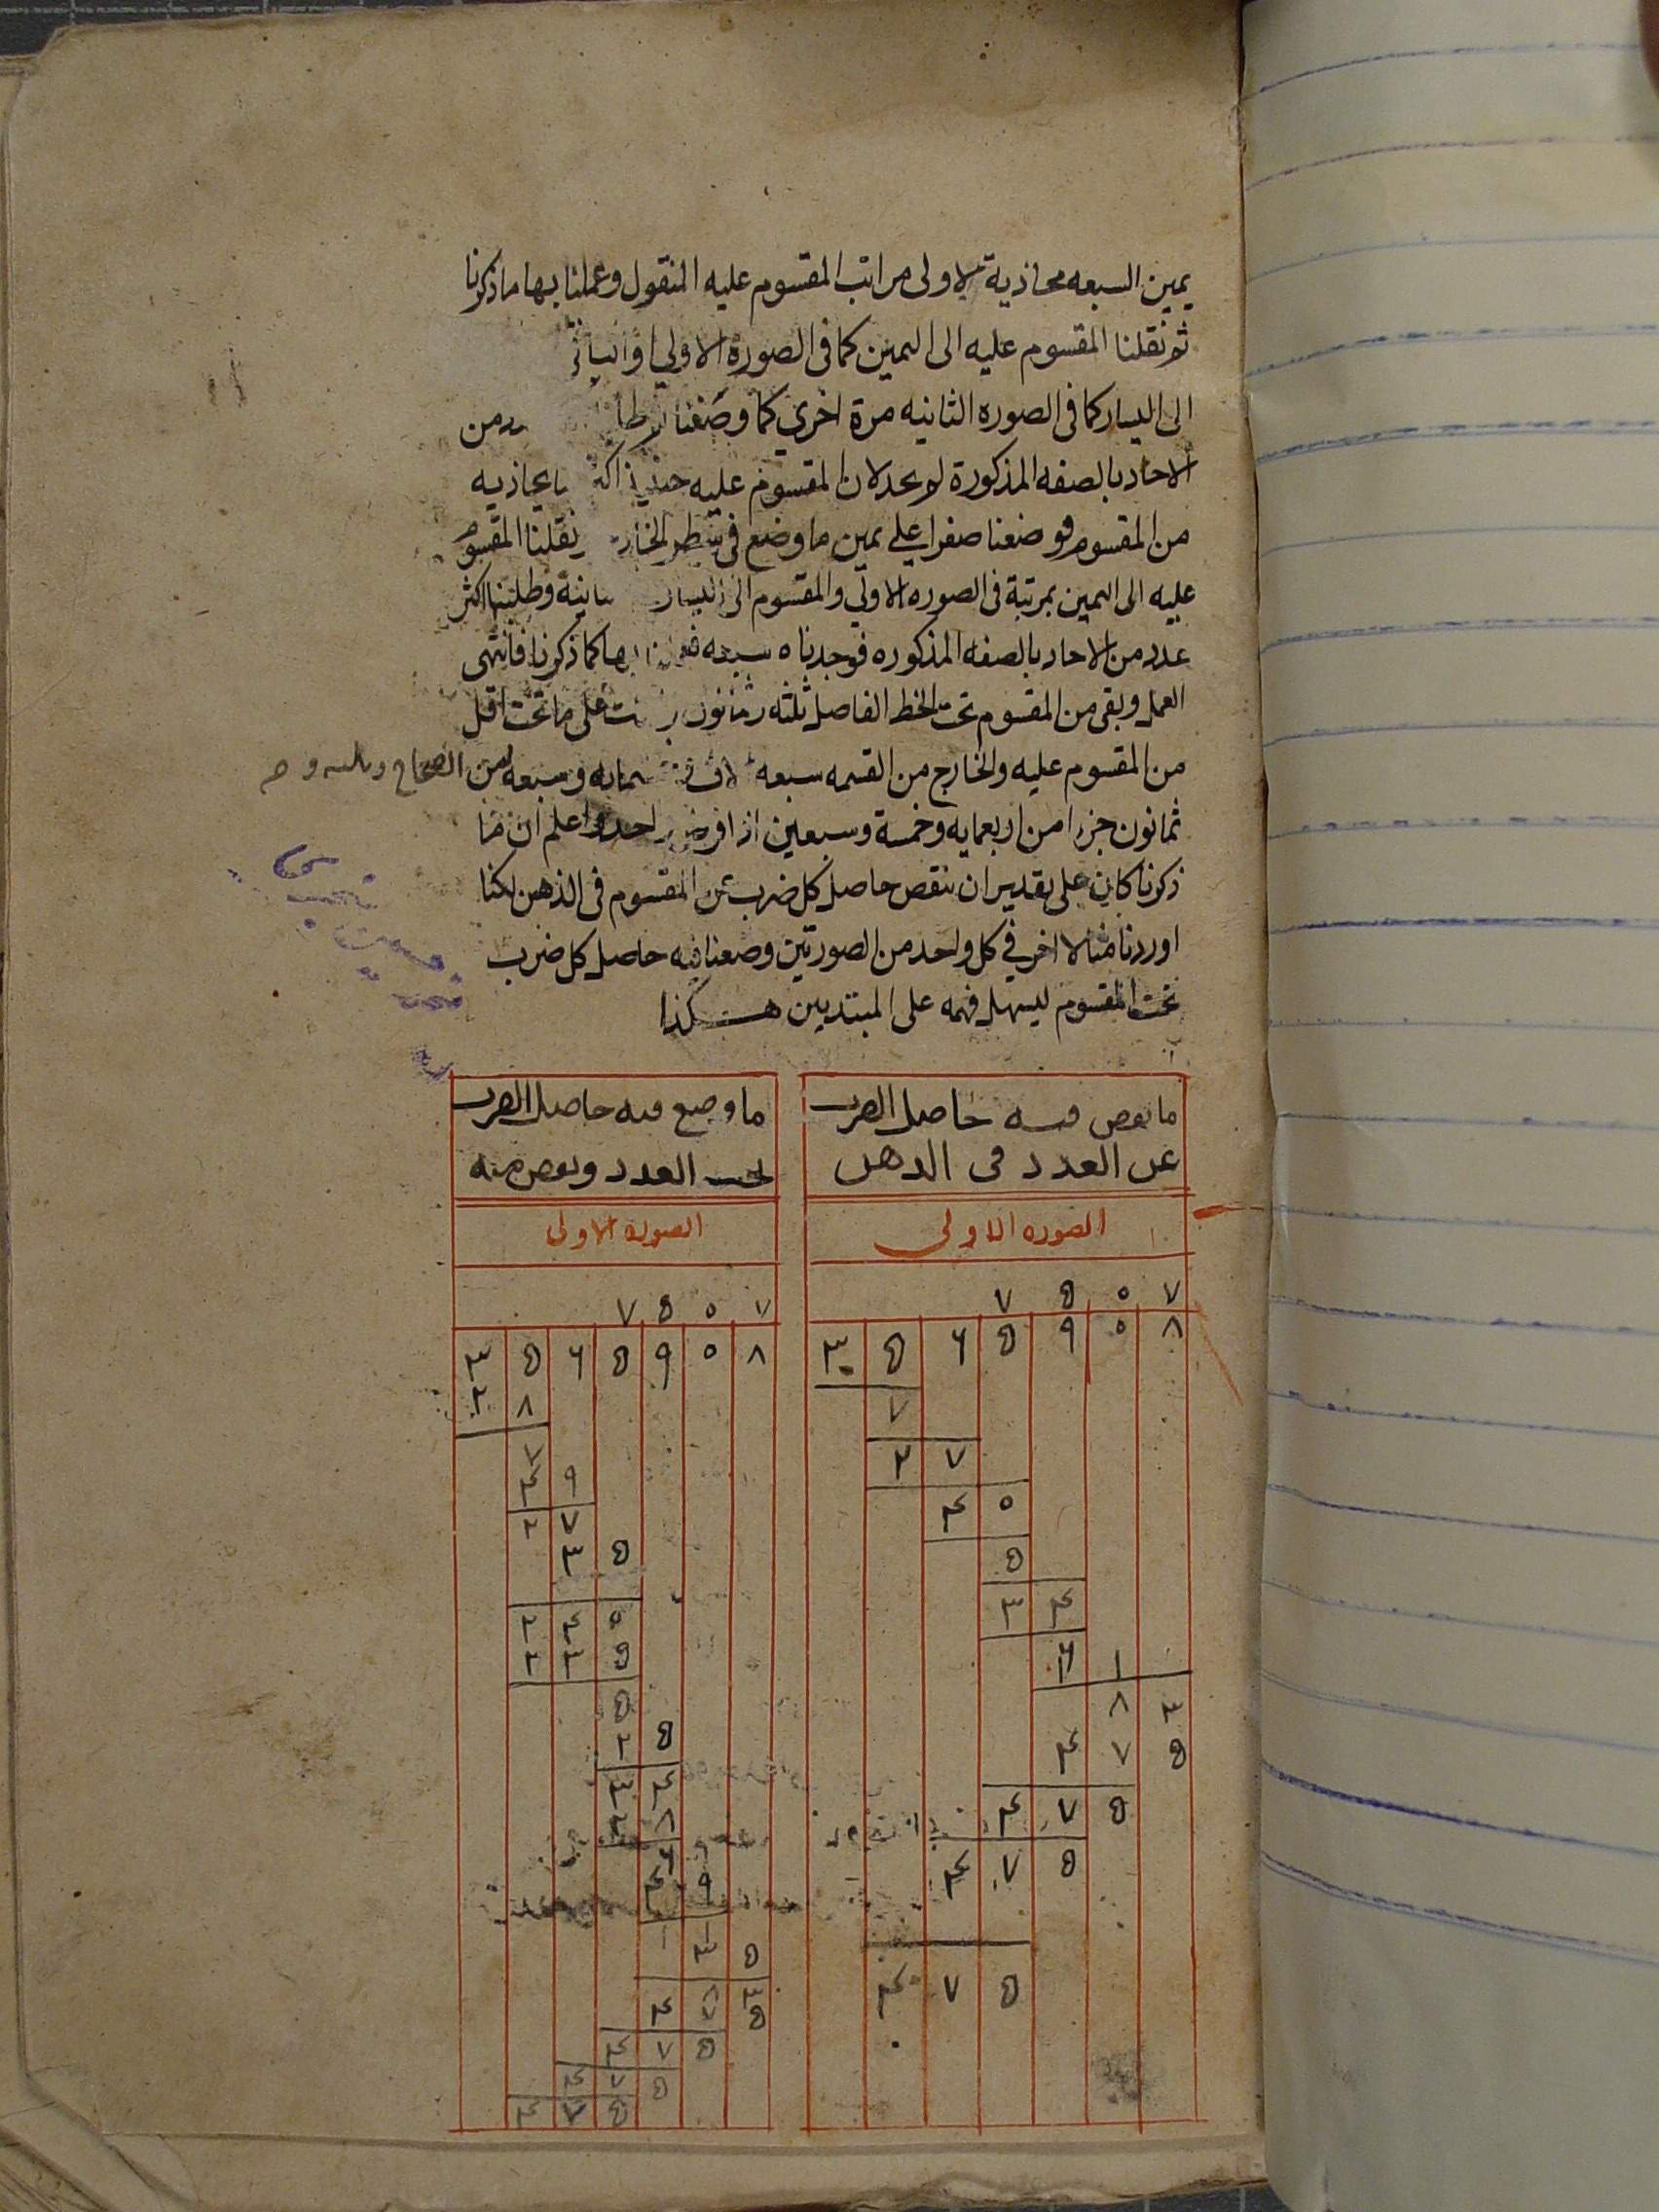 يمين السبعه محاذية لاولى مراتب المقسوم عليه المنقول وعملنا بها ما ذكرنا
ثم نقلنا المقسوم عليه الى اليمين كما فى الصورة الاولي او الباقى
الى اليسار كما فى الصوره الثانيه مرة اخري كما وصفنا من
الاحاد بالصفه المذكورة لم يجد لان المقسوم عليه حينئذ اكثر مما يحاذيه
من المقسوم فوضعنا صفرا علي يمين ما وضع فى سطر الخارج نقلنا المقسوم
عليه الى اليمين بمرتبة فى الصوره الاولي والمقسوم الى اليسار وطلبنا اكثر
عدد من الاحاد بالصفه المذكوره فوجدناه سبعه بها كما ذكرنا فانتهى
العمل وبقى من المقسوم تحت الخط الفاصل ثلثه وثمانون على ما تحت اقل
من المقسوم عليه والخارج من القسمه سبعه الاف وخمسمايه وسبعه من الصحاح
ثمانون جزءا من اربعمايه وخمسة وسبعين اذا فرض واحدا واعلم ان ما
ذكرنا كان على تقدير ان ننقص حاصل كل ضرب عن المقسوم فى الذهن لكنا
اوردنا مثالا اخر في كل واحد من الصورتين وضعنا فيه حاصل كل ضرب
تحت المقسوم ليسهل فهمه على المبتديين هكذا
ما نقص فيه حاصل الضرب
عن العدد فى الذهن
الصوره الاولى
٧ ٥ ٠ ٧
٣ ٥ ٦ ٥ ٩ ٠ ٨
٧
٢ ٧
٤ ٠
٥
٣ ٤
٦ ١
٨ ٣
٤ ٧ ٥
٤ ٧ ٥
٤ ٧ ٥
٤ ٧ ٥
ما وضع فيه حاصل الضرب
تحت العدد ونقص منه
الصورة الاولى
٧ ٥ ٠ ٧
٣ ٥ ٦ ٥ ٩ ٠ ٨
٢ ٨
٧
٤ ٩
٢ ٧
٣ ٥
٢ ٤ ٠
٢ ٣ ٥
٥
٢ ٥
٣ ٤
٢ ٨
٦
٤ ٩
١ ١
٣ ٥
٨ ٣
٤ ٧ ٥
٤ ٧ ٥
٤ ٧ ٥
٤ ٧ ٥